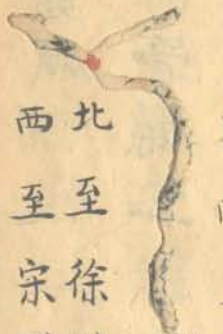 北至徐
西至宋